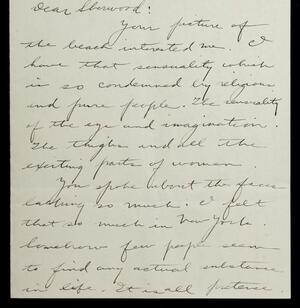 Dear Sherwood:
Your picture of
the beach interested me. I
have that sensuality which
is so condemned by religious
and pure people. The sensuality
of the eye and imagination.
The thighs and all the
exciting parts of women.
You spoke about the faces
lacking so much. I felt
that so much in New York.
Somehow few people seem
to find any actual substance
in life. It is all pretense.